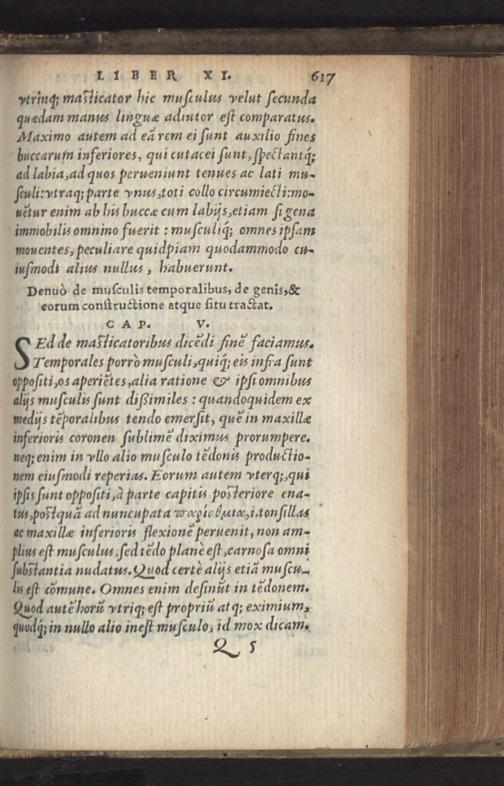 LIBER XI. 617
vtrinq; masticator hic musculus velut secunda
quædam manus linguæ adiutor est comparatus.
Maximo autem ad eã rem ei sunt auxilio fines
buccarum inferiores, qui cutacei sunt, spectantq;
ad labia, ad quos perueniunt tenues ac lati mu-
sculi: vtraq; parte vnus, toti collo circumiecti: mo-
uẽtur enim ab his buccæ cum labijs, etiam si gena
immobilis omnino fuerit: musculiq; omnes ipsam
mouentes, peculiare quidpiam quodammodo cu-
iusmodi alius nullus, habuerunt.
Denuò de musculis temporalibus, de genis, &
eorum constructione atque situ tractat.
CAP. V.
SEd de masticatoribus dicẽdi finẽ faciamus.
Temporales porrò musculi, quiq; eis infra sunt
oppositi, os aperiẽtes, alia ratione & ipsi omnibus
alijs musculis sunt dißimiles: quandoquidem ex
medijs tẽporalibus tendo emersit, quẽ in maxillæ
inferioris coronen sublimẽ diximus prorumpere.
neq; enim in vllo alio musculo tẽdonis productio-
nem eiusmodi reperias. Eorum autem vterq;, qui
ipsis sunt oppositi, à parte capitis posteriore ena-
tus, postquã ad nuncupata παρίσθμια, i. tonsillas
ac maxillæ inferioris flexionẽ peruenit, non am-
plius est musculus, sed tẽdo planè est, carnosa omni
substantia nudatus. Quod certè alijs etiã muscu-
lis est cõmune. Omnes enim desinũt in tẽdonem.
Quod autẽ horũ vtriq; est propriũ atq; eximium,
quodq; in nullo alio inest musculo, id mox dicam.
Q 5